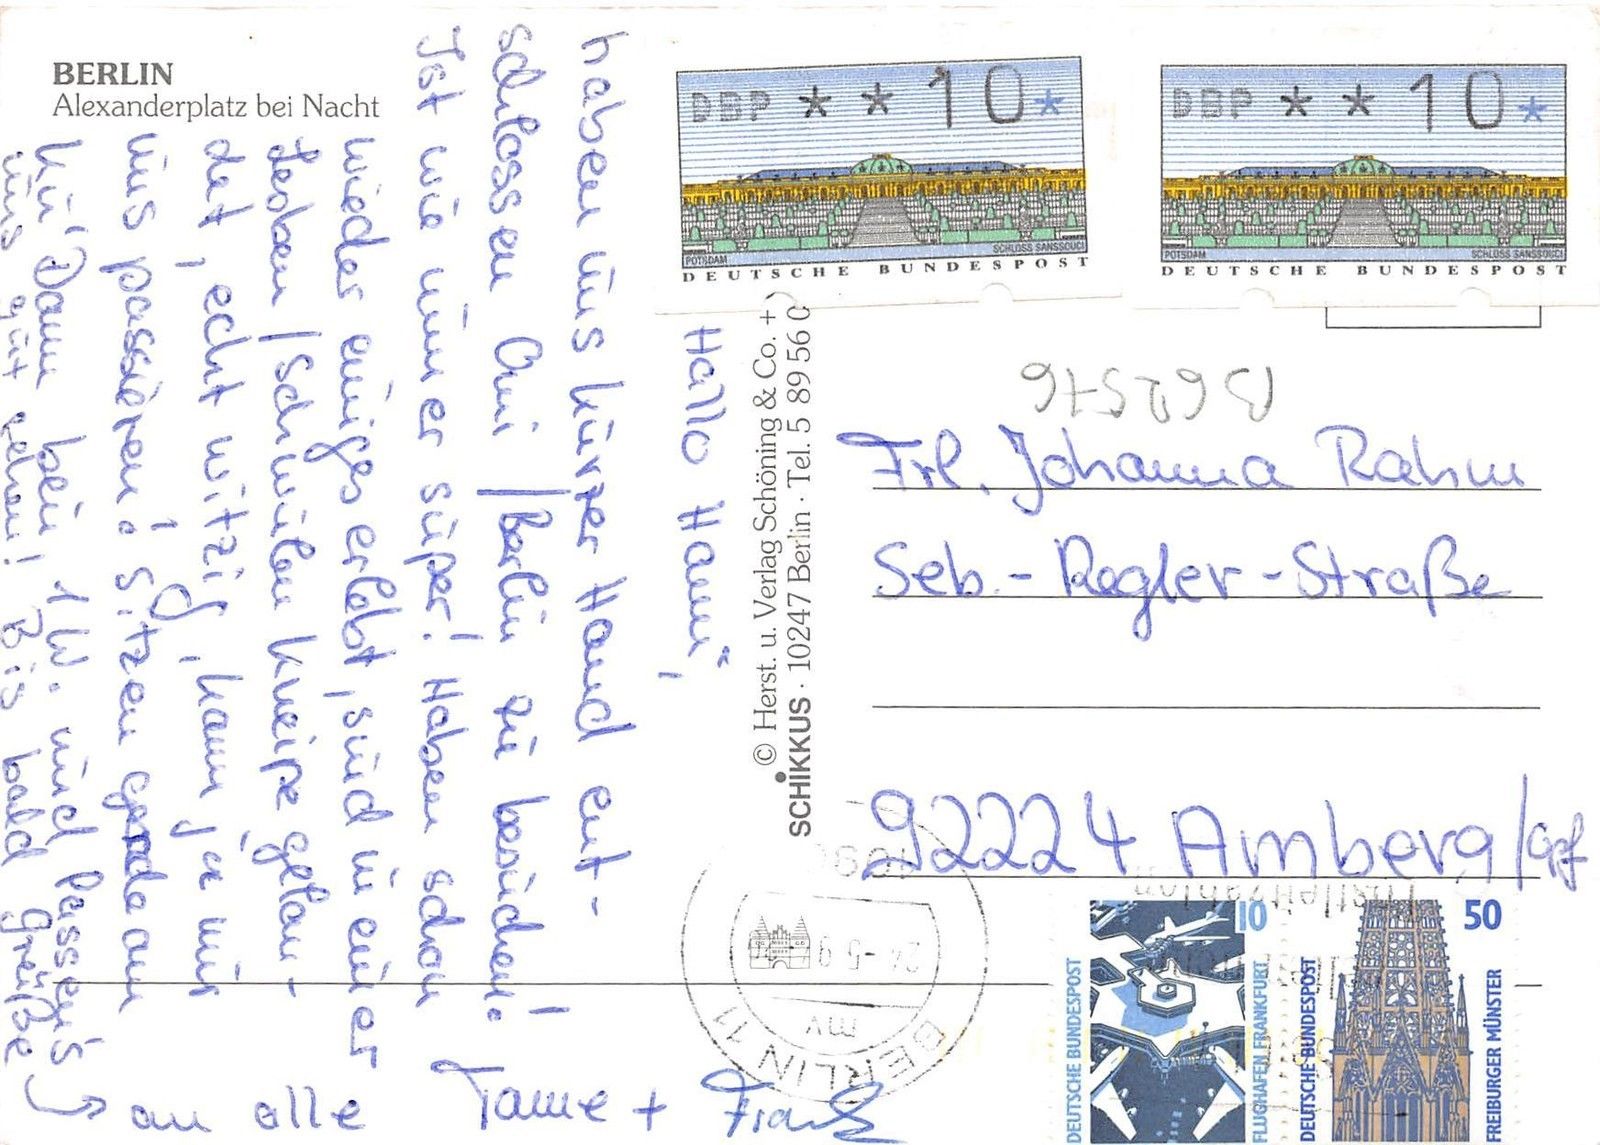 BERLIN
Alexanderplatz bei Nacht
Hallo Hanni,
haben uns kurzer Hand ent-
schlossen Oni /Berlin zu besuchen!
Ist wie immer super! Haben schon
wieder einiges erlebt, sind in einer
Lesben/Schwulen Kneipe gelan-
det, echt witzig, kann ja nur
uns passieren. Sitzen gerade am
Ku'Damm bein und lassen's
uns gut gehen! Bis bald Grüße
an alle Tanne + Frank
© Herst. u. Verlag Schöning & Co. +
SCHIKKUS · 10247 Berlin · Tel. 5 89 56 0
DBP ** 10*
POTSDAM SCHLOSS SANSSOUCI
DEUTSCHE BUNDESPOST
DBP ** 10*
POTSDAM SCHLOSS SANSSOUCI
DEUTSCHE BUNDESPOST
B62576
Frl. Johanna Rahm
Seb.-Regler-Straße
92224 Amberg/Opf
10
DEUTSCHE BUNDESPOST
FLUGHAFEN FRANKFURT
50
DEUTSCHE BUNDESPOST
FREIBURGER MÜNSTER
BERLIN 11
mv
24.-5.9